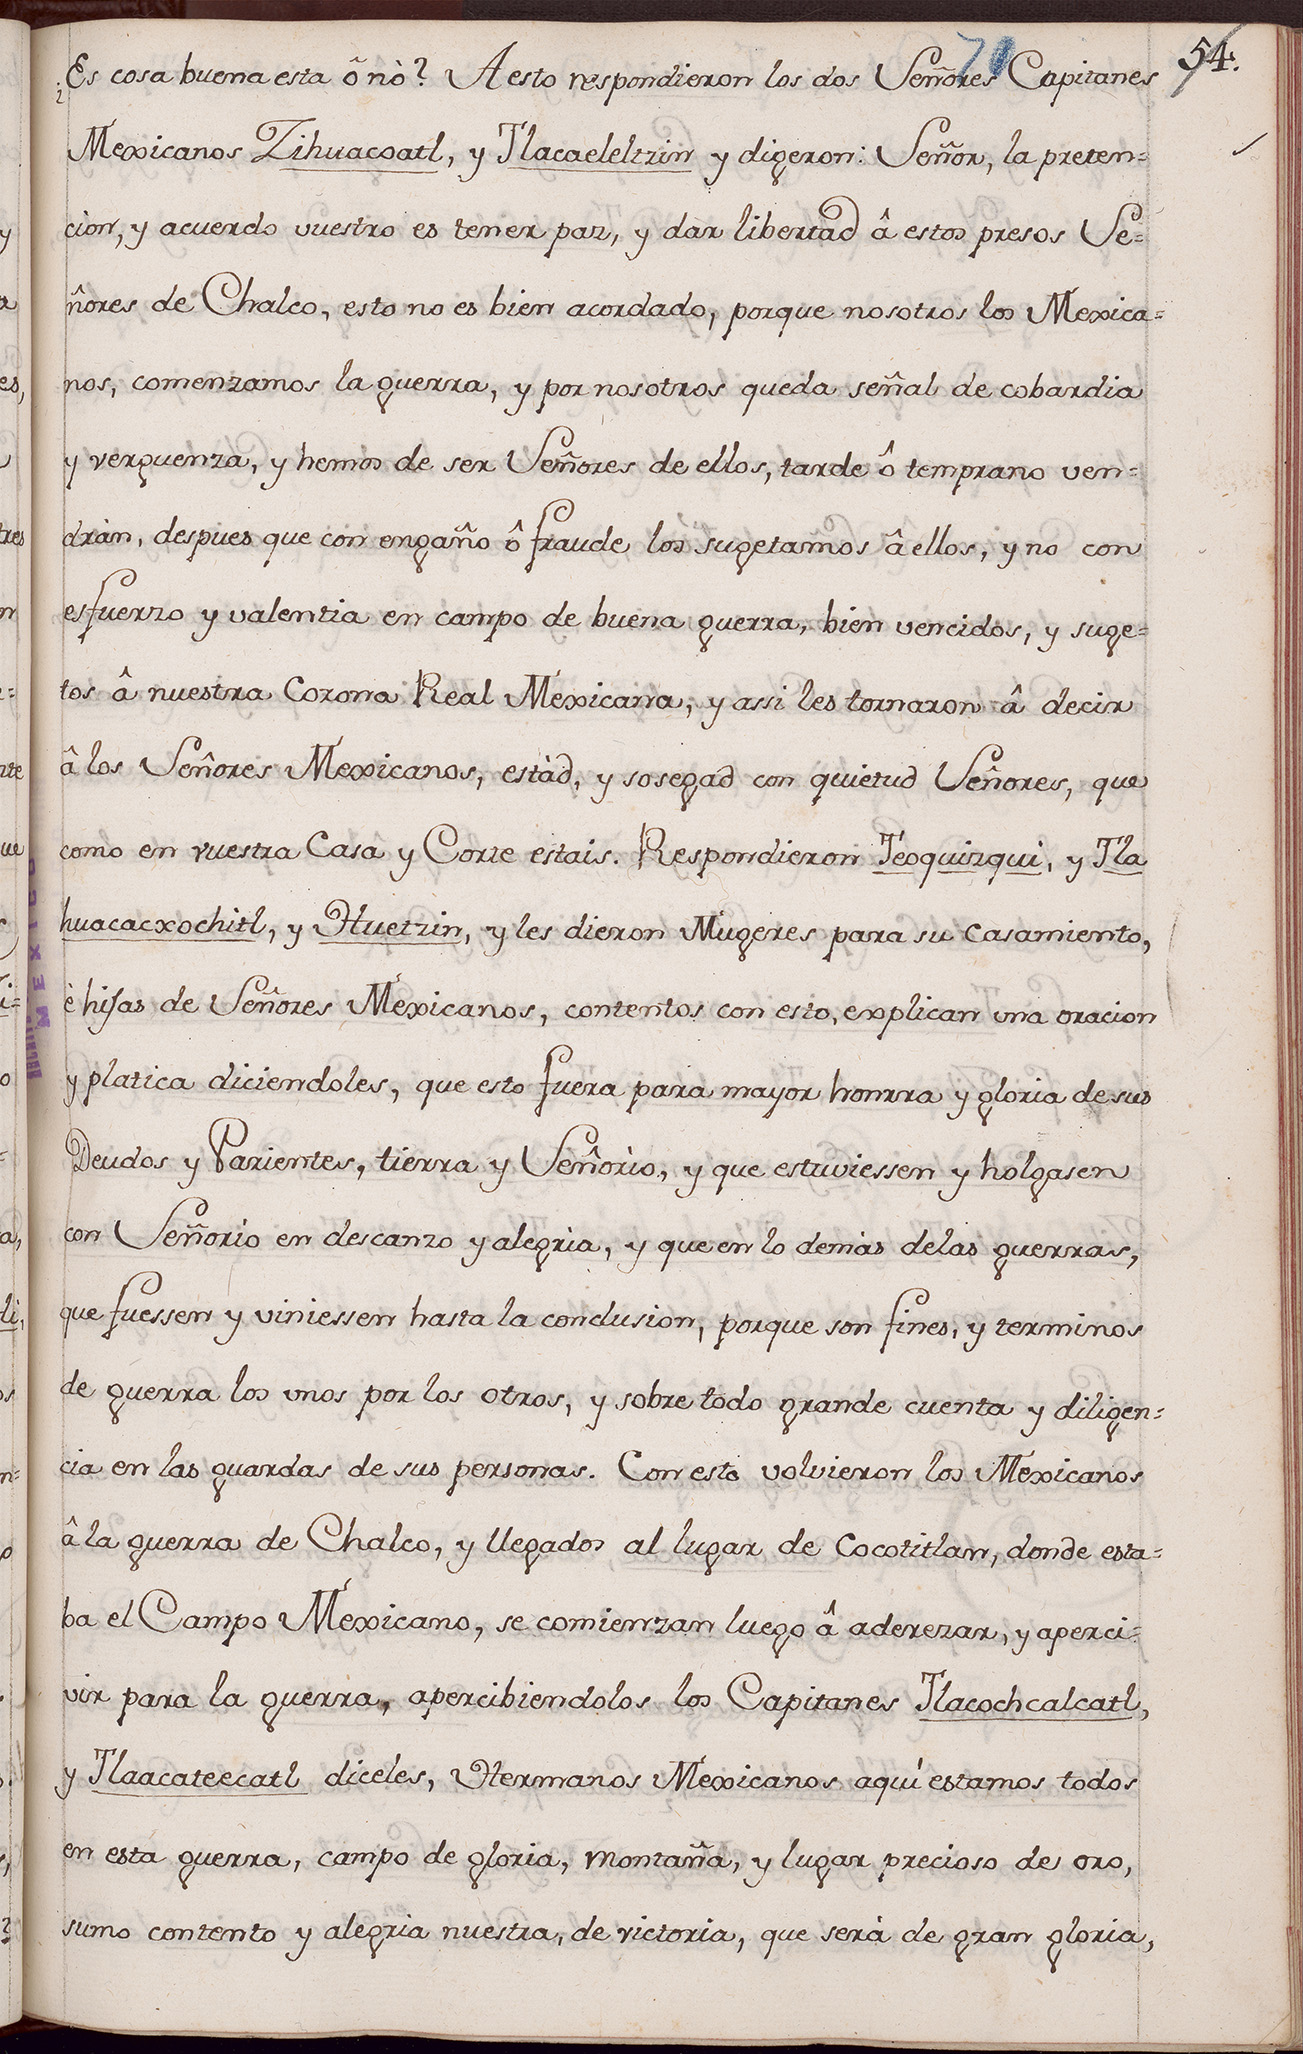 70 54.
¿Es cosa buena esta ô nò? A esto respondieron los dos Señores Capitanes
Mexicanos Zihuacoatl, y Tlacaeleltzin y digeron: Señor, la preten=
cion, y acuerdo vuestro es tener paz, y dar libertad â estos presos Se=
ñores de Chalco, esto no es bien acordado, porque nosotros los Mexica=
nos, comenzamos la guerra, y por nosotros queda señal de cobardia
y verguenza, y hemos de ser Señores de ellos, tarde ô temprano ven=
dràn, despues que con engaño ô fraude los sugetamos â ellos, y no con
esfuerzo y valentia en campo de buena guerra, bien vencidos, y suge=
tos â nuestra Corona Real Mexicana, y assi les tornaron â decir
â los Señores Mexicanos, estàd, y sosegad con quietud Señores, que
como en vuestra Casa y Corte estais. Respondieron Teoquizqui, y Tla
huacacxochitl, y Huetzin, y les dieron Mugeres para su casamiento,
è hijas de Señores Mexicanos, contentos con esto, explican una oracion
y platica diciendoles, que esto fuera para mayor honrra y gloria de sus
Deudos y Parientes, tierra y Señorìo, y que estuviessen y holgasen
con Señorìo en descanzo y alegrìa, y que en lo demàs de las guerras,
que fuessen y viniessen hasta la conclusion, porque son fines, y terminos
de guerra los unos por los otros, y sobre todo grande cuenta y diligen=
cia en las guardas de sus personas. Con esto volvieron los Mexicanos
â la guerra de Chalco, y llegados al lugar de Cocotitlan, donde esta=
ba el Campo Mexicano, se comienzan luego â aderezar, y aperci=
vir para la guerra, apercibiendolos los Capitanes Tlacochcalcatl,
y Tlaacateecatl diceles, Hermanos Mexicanos aquí estamos todos
en esta guerra, campo de gloria, montaña, y lugar precioso de oro,
sumo contento y alegria nuestra, de victoria, que serà de gran gloria,